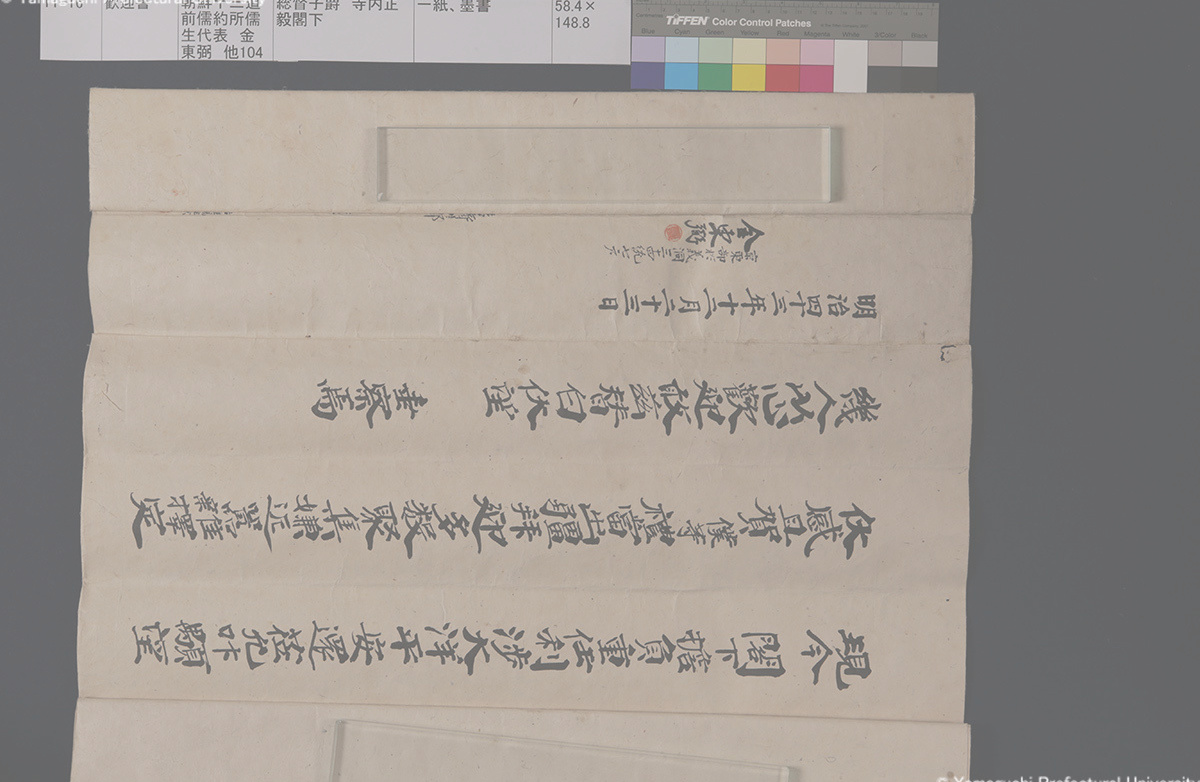 © Yamaguchi Prefectural University
前儒約所儒
生代表 金
東弼 他104
総督子爵 寺内正
毅閣下
一紙、墨書
58.4×
148.8
TIFFEN Color Control Patches
Blue Cyan Green Yellow Red Magenta White 3/Color Black
現今 閣下擔負重任利涉大洋平安還莅允叶顒望
伏感且賀僕等 禮當出疆拜迎多数聚集嫌近 擇定
幾人 歡迎故茲 白伏望 垂察焉
明治四十三年十二月二十三日
京東部仁義洞三十四統七戶
金東弼
© Yamaguchi Prefectural University